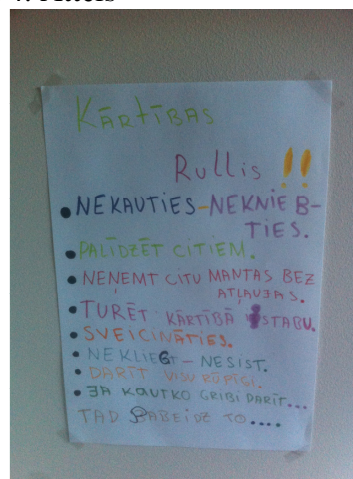 KĀRTĪBAS
RULLIS !!
• NEKAUTIES-NEKNIEB-
TIES.
• PALĪDZĒT CITIEM.
• NEŅEMT CITU MANTAS BEZ
ATĻAUJAS.
• TURĒT KĀRTĪBĀ ISTABU.
• SVEICINĀTIES.
• NEKLIEGT - NESIST.
• DARĪT VISU RŪPĪGI.
• JA KAUTKO GRIBI DARĪT...
TAD PABEIDZ TO....